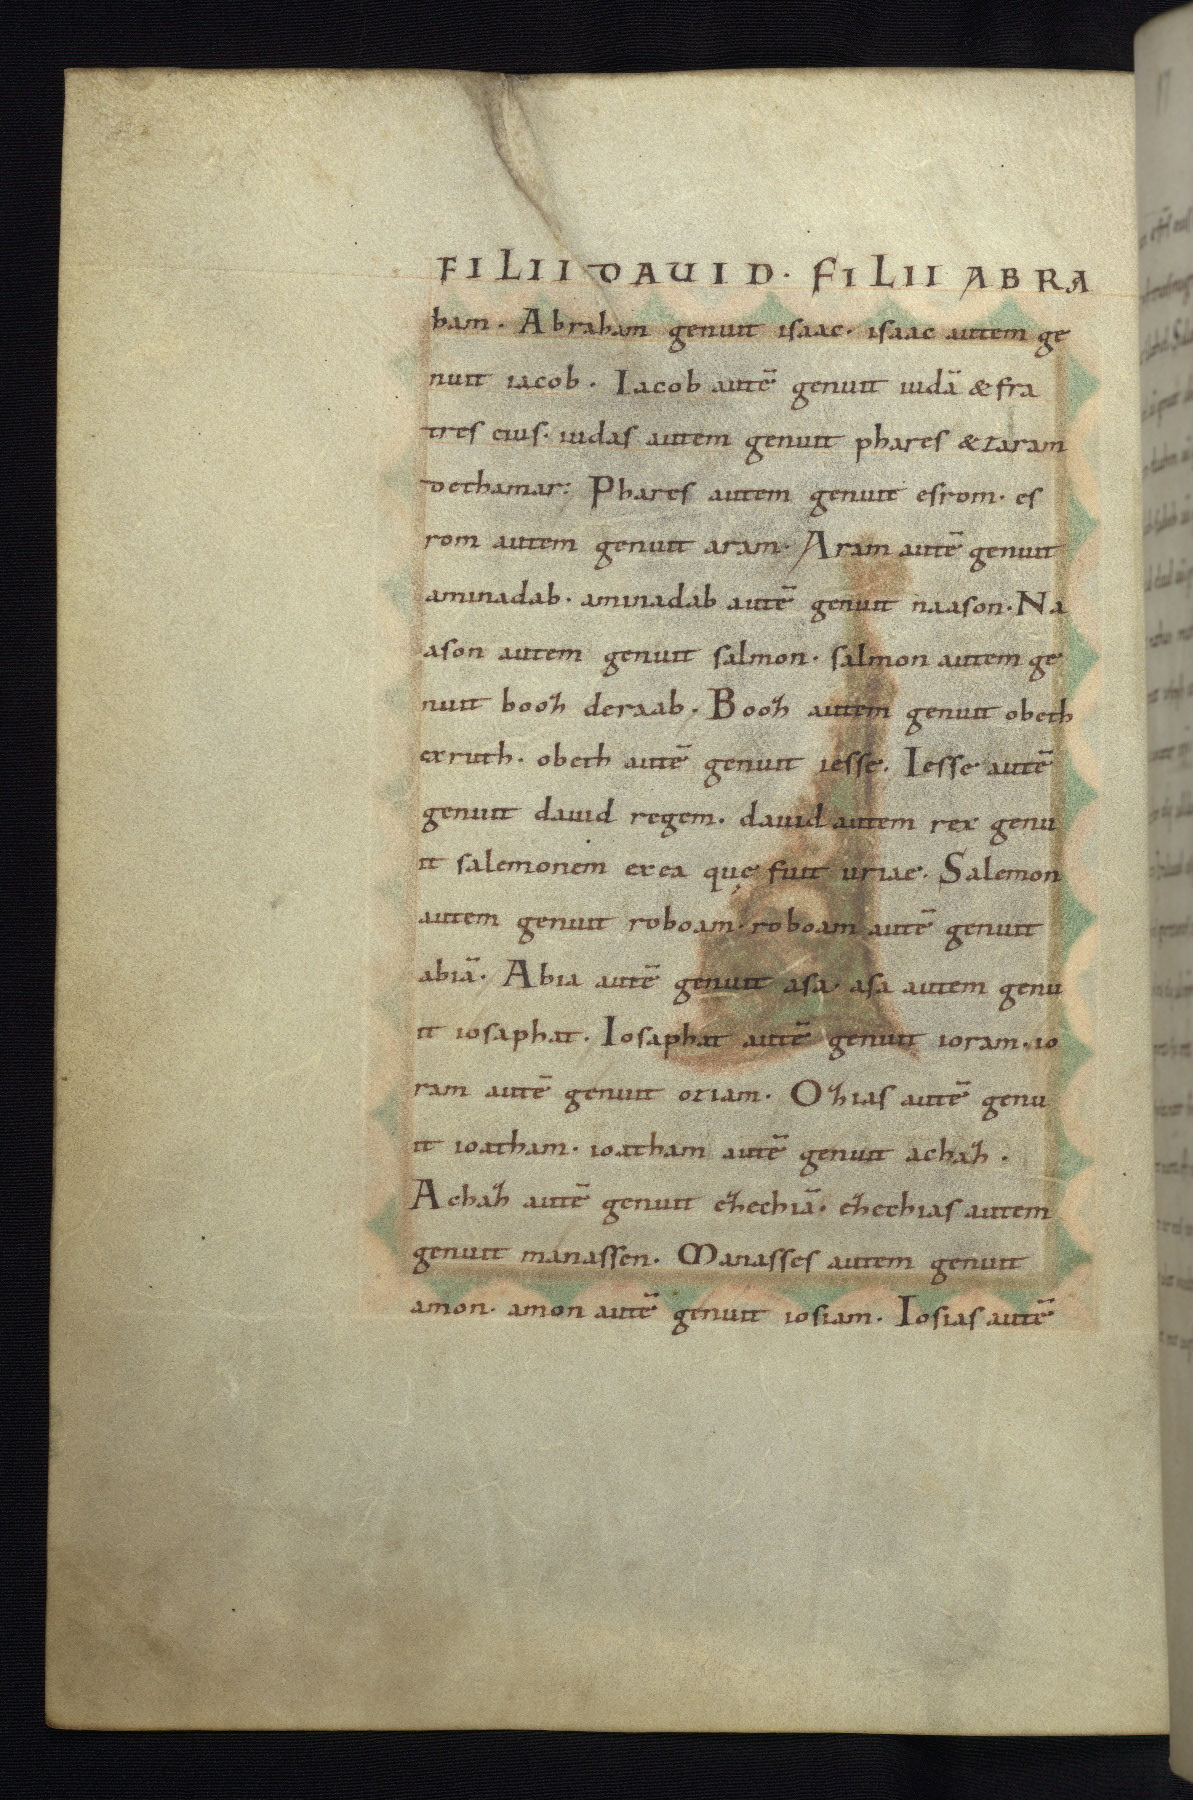 FILII DAUID. FILII ABRA
ham. Abraham genuit isaac. isaac autem ge
nuit iacob. Iacob autē genuit iudā & fra
tres eius. iudas autem genuit phares & zaram
dethamar: Phares autem genuit esrom. es
rom autem genuit aram. Aram autē genuit
aminadab. aminadab autē genuit naason. Na
ason autem genuit salmon. salmon autem ge
nuit booz deraab. Booz autem genuit obeth
exruth. obeth autē genuit iesse. Iesse autē
genuit dauid regem. dauid autem rex genu
it salemonem exea quę fuit uriae. Salemon
autem genuit roboam. roboam autē genuit
abiā. Abia autē genuit asa. asa autem genu
it iosaphat. Iosaphat autē genuit ioram. io
ram autē genuit oziam. Ozias autē genu
it ioatham. ioatham autē genuit achaz.
Achaz autē genuit ezechiā. ezechias autem
genuit manassen. Manasses autem genuit
amon. amon autē genuit iosiam. Iosias autē